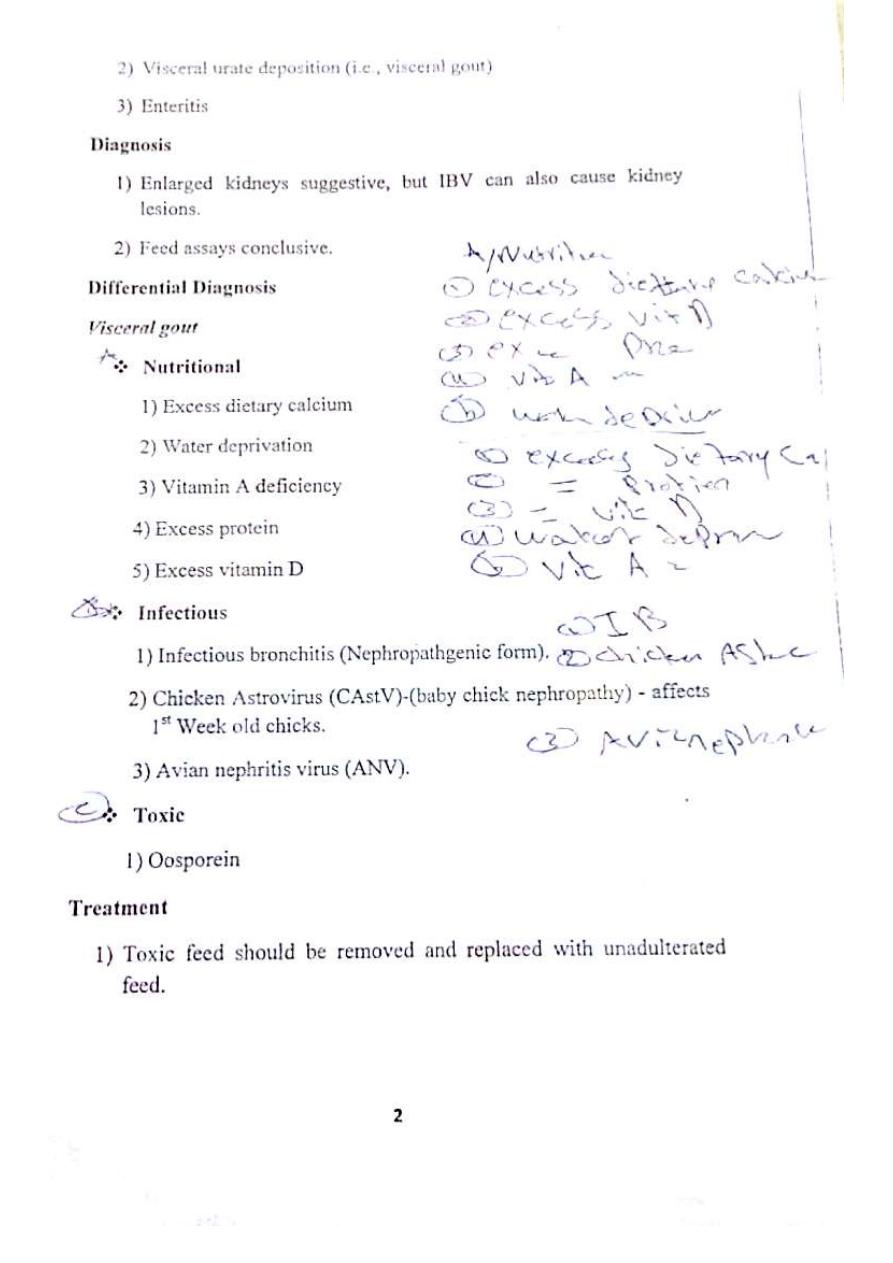 2) Visceral urate deposition (i.e., visceral gout)
3) Enteritis
Diagnosis
1) Enlarged kidneys suggestive, but IBV can also cause kidney
lesions.
2) Feed assays conclusive.
A/Nutrition
Differential Diagnosis
① excess dietary calcium
Visceral gout
② excess vit D
③ ex
❖ Nutritional
④ vit A
1) Excess dietary calcium
⑤
2) Water deprivation
① excess Dietary Cal
3) Vitamin A deficiency
② = Protien
③ = vit D
4) Excess protein
④ water
5) Excess vitamin D
⑤ Vit A
❖ Infectious
① IB
1) Infectious bronchitis (Nephropathgenic form).
② chicken
2) Chicken Astrovirus (CAstV)-(baby chick nephropathy) - affects
1st Week old chicks.
③
3) Avian nephritis virus (ANV).
C ❖ Toxic
1) Oosporein
Treatment
1) Toxic feed should be removed and replaced with unadulterated
feed.
2